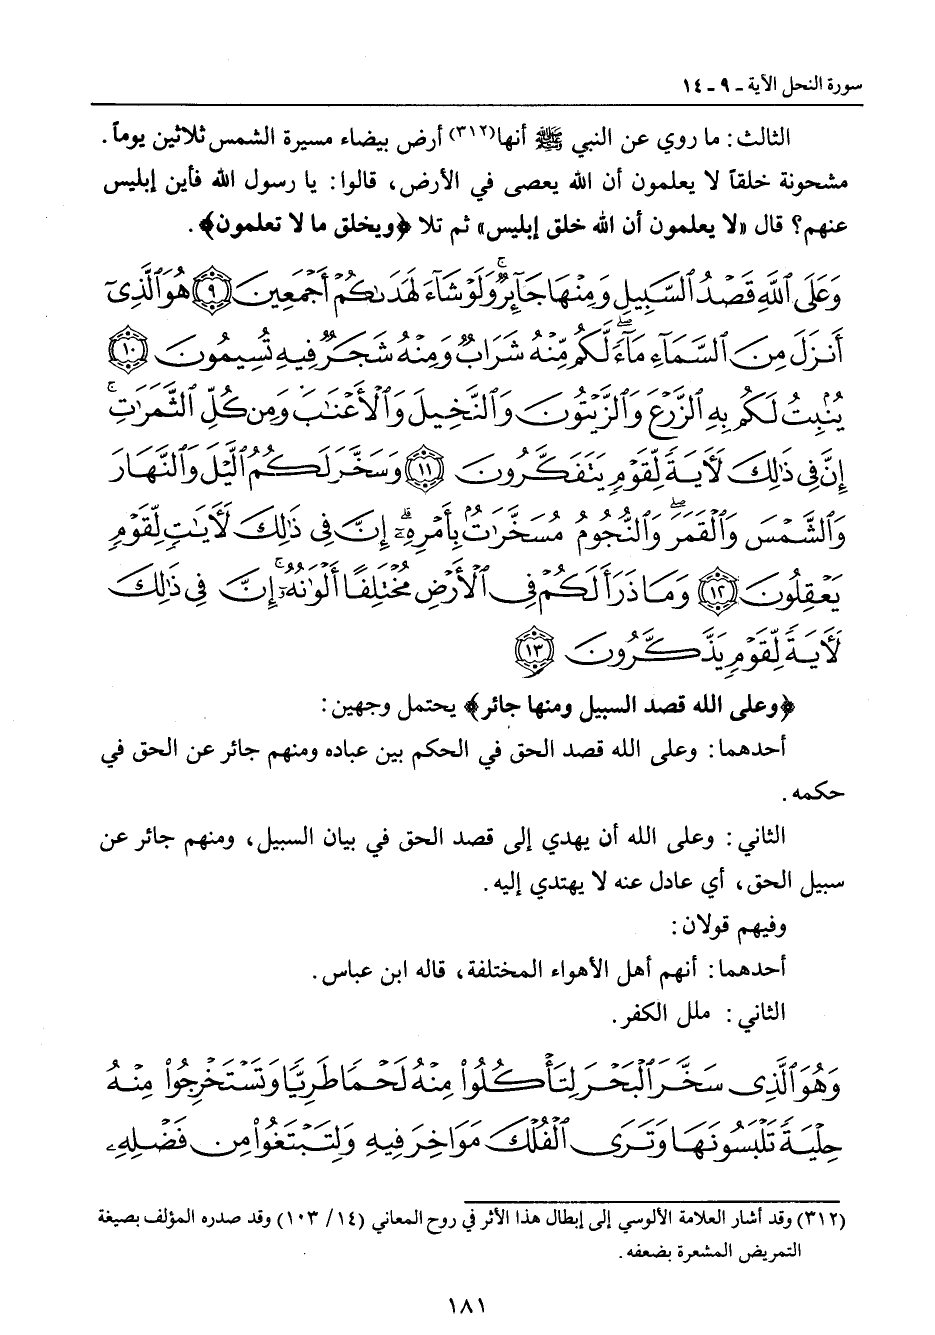 سورة النحل الآية ـ ٩ ـ ١٤
الثالث: ما روي عن النبي ﷺ أنها(٣١٢) أرض بيضاء مسيرة الشمس ثلاثين يوماً.
مشحونة خلقاً لا يعلمون أن الله يعصى في الأرض، قالوا: يا رسول الله فأين إبليس
عنهم؟ قال «لا يعلمون أن الله خلق إبليس» ثم تلا ﴿ويخلق ما لا تعلمون﴾.
وَعَلَى ٱللَّهِ قَصْدُ ٱلسَّبِيلِ وَمِنْهَا جَآئِرٌ ۚ وَلَوْ شَآءَ لَهَدَىٰكُمْ أَجْمَعِينَ ﴿٩﴾ هُوَ ٱلَّذِىٓ
أَنزَلَ مِنَ ٱلسَّمَآءِ مَآءً ۖ لَّكُم مِّنْهُ شَرَابٌ وَمِنْهُ شَجَرٌ فِيهِ تُسِيمُونَ ﴿١٠﴾
يُنۢبِتُ لَكُم بِهِ ٱلزَّرْعَ وَٱلزَّيْتُونَ وَٱلنَّخِيلَ وَٱلْأَعْنَٰبَ وَمِن كُلِّ ٱلثَّمَرَٰتِ ۗ
إِنَّ فِى ذَٰلِكَ لَءَايَةً لِّقَوْمٍ يَتَفَكَّرُونَ ﴿١١﴾ وَسَخَّرَ لَكُمُ ٱلَّيْلَ وَٱلنَّهَارَ
وَٱلشَّمْسَ وَٱلْقَمَرَ ۖ وَٱلنُّجُومُ مُسَخَّرَٰتٌۢ بِأَمْرِهِۦٓ ۗ إِنَّ فِى ذَٰلِكَ لَءَايَٰتٍ لِّقَوْمٍ
يَعْقِلُونَ ﴿١٢﴾ وَمَا ذَرَأَ لَكُمْ فِى ٱلْأَرْضِ مُخْتَلِفًا أَلْوَٰنُهُۥٓ ۗ إِنَّ فِى ذَٰلِكَ
لَءَايَةً لِّقَوْمٍ يَذَّكَّرُونَ ﴿١٣﴾
﴿وعلى الله قصد السبيل ومنها جائر﴾ يحتمل وجهين:
أحدهما: وعلى الله قصد الحق في الحكم بين عباده ومنهم جائر عن الحق في
حكمه.
الثاني: وعلى الله أن يهدي إلى قصد الحق في بيان السبيل، ومنهم جائر عن
سبيل الحق، أي عادل عنه لا يهتدي إليه.
وفيهم قولان:
أحدهما: أنهم أهل الأهواء المختلفة، قاله ابن عباس.
الثاني: ملل الكفر.
وَهُوَ ٱلَّذِى سَخَّرَ ٱلْبَحْرَ لِتَأْكُلُوا۟ مِنْهُ لَحْمًا طَرِيًّا وَتَسْتَخْرِجُوا۟ مِنْهُ
حِلْيَةً تَلْبَسُونَهَا وَتَرَى ٱلْفُلْكَ مَوَاخِرَ فِيهِ وَلِتَبْتَغُوا۟ مِن فَضْلِهِۦ
(٣١٢) وقد أشار العلامة الألوسي إلى إبطال هذا الأثر في روح المعاني (١٤/ ١٠٣) وقد صدره المؤلف بصيغة
التمريض المشعرة بضعفه.
١٨١